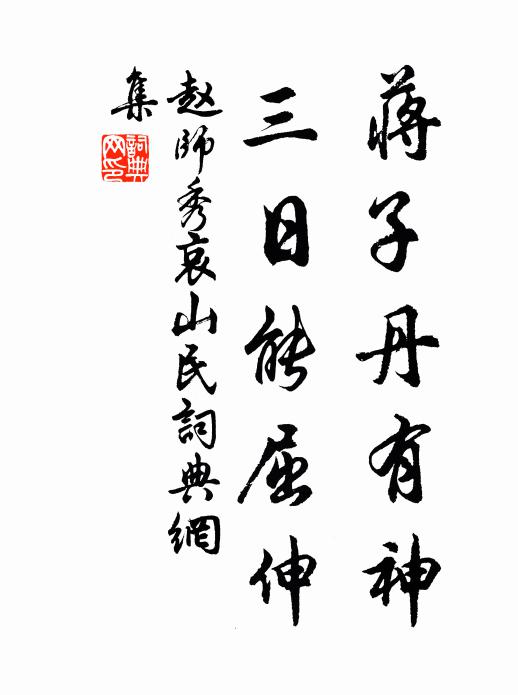 蔣子丹有神
三日能屈伸
赵師秀哀山民詞典網
集
詞典
网印